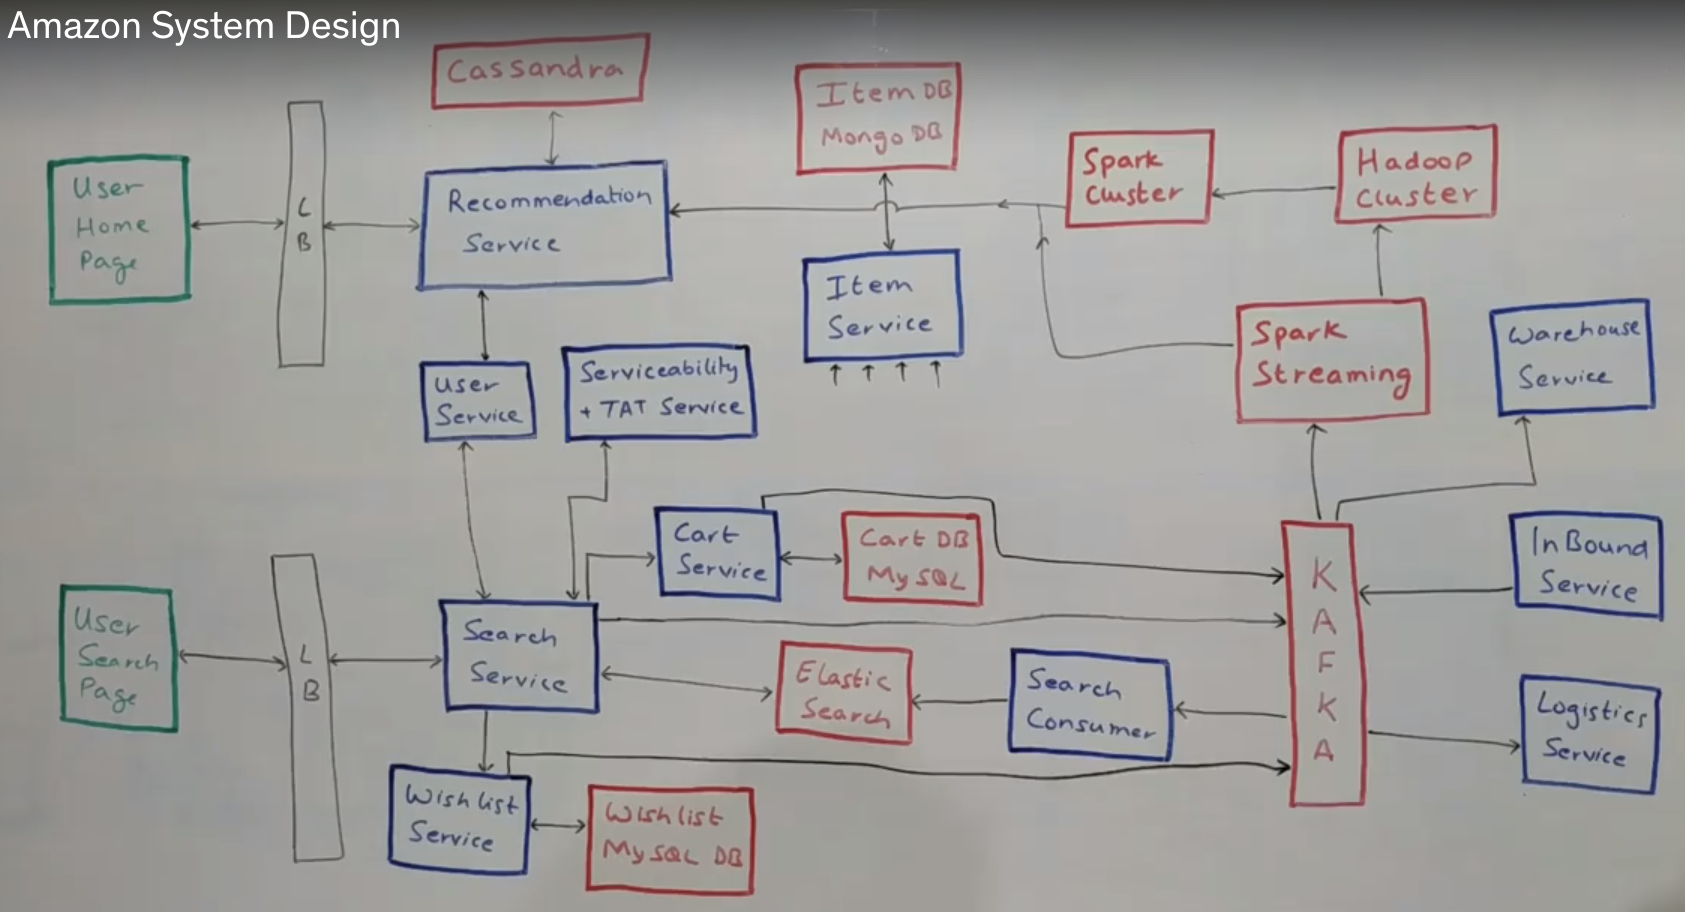 Amazon System Design
Cassandra
Item DB
Mongo DB
Spark
Cluster
Hadoop
Cluster
User
Home
Page
L
B
Recommendation
Service
Item
Service
Spark
Streaming
Warehouse
Service
User
Service
Serviceability
+ TAT Service
Cart
Service
Cart DB
MySQL
InBound
Service
K
A
F
K
A
User
Search
Page
L
B
Search
Service
Elastic
Search
Search
Consumer
Logistics
Service
Wishlist
Service
Wishlist
MySQL DB